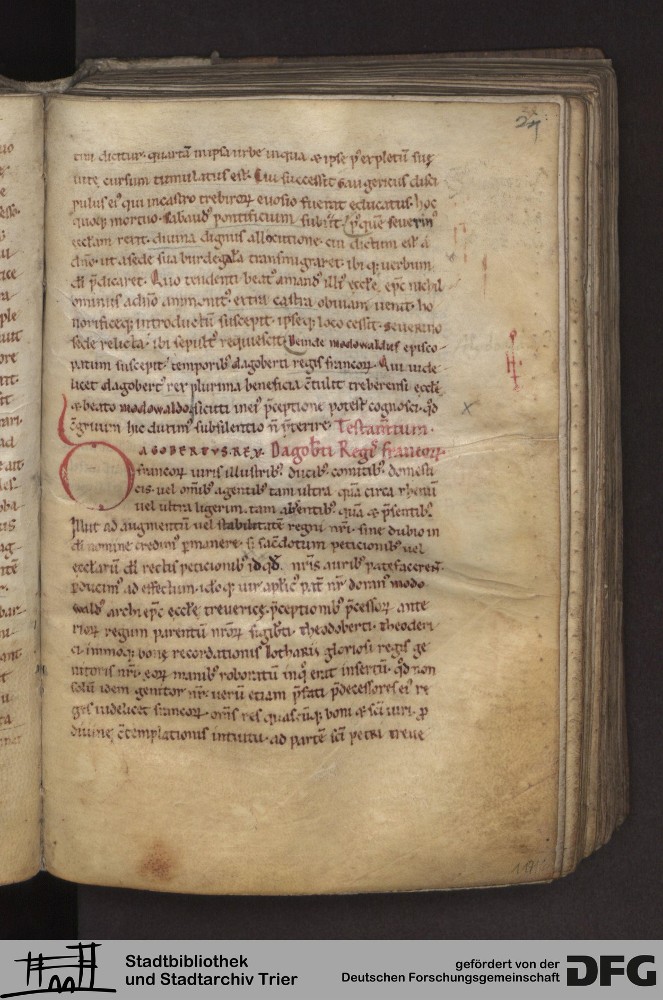 tini dicitur. quartā in ipsa urbe in qua & ipse p̄ expletū suę
uitę cursum tumulatus est. Cui successit Maugericus disci
pulus ei' qui in castro trebirorꝫ euosio fuerat educatus. hoc
quoqꝫ mortuo. sabaud' pontificium subiit. p' quē seuerin'
ecclam rexit. diuina dignus allocutione. cui dictum est a
dn̄o. ut a sede sua burdegalā transmigraret. ibi qꝫ uerbum
di p̄dicaret. Quo tendenti beat' amand' illi' eccłę epc nichil
ominus a dn̄o ammonit' extra castra obuiam uenit. ho
norificeqꝫ introductū suscepit. ipseqꝫ loco cessit. Seuerino
sede relicta. ibi sepult' requiescit. Deinde modowaldus episco
patum suscepit. temporib' dagoberti regis francorꝫ. Qui uide
licet dagobert' rex plurima beneficia c̄tulit treberensi eccłę
& beato modowaldo. sicuti in ei' p̄ceptione potest cognosci. qd̄
c̄gruum hic duxim' sub silentio n̄ p̄terire. Testam̄tum.
DAGOBERTUS. REX. Dagob̄ti Regis francorꝫ.
francorꝫ. uiris illustrib' ducib' comitib' domesti
cis. uel om̄ib' agentib' tam ultra quā circa rhenū
uel ultra ligerim. tam absentib' quā & p̄sentib'.
Illut ad augmentū uel stabilitatē regni nr̄i. sine dubio in
di nomine credim' p̄manere. si sacdotum peticionib' uel
ecclarū di rectis peticionib' id qd̄ nr̄is aurib' patefacerent
p̄ducim' ad effectum. ideo qꝫ uir aplic' pat̄ nr̄ domn' modo
wald' archiepc eccłę treuericę. p̄ceptionib' p̄cessorꝫ ante
riorꝫ regum parentū nr̄orꝫ. sigib̄ti. theodoberti. theoderi
ci. immoqꝫ bonę recordationis lotharii gloriosi regis ge
nitoris nr̄i. eorꝫ manib' roboratū in q̊ erat insertū. qd̄ non
solū idem genitor nr̄. uerū etiam p̄fati p̄decessores ei' re
ges uidelicet francorꝫ. om̄s res quascūqꝫ boni & sc̄i uiri. p̄
diuinę c̄templationis intuitu. ad partē sc̄i petri treue
Stadtbibliothek
und Stadtarchiv Trier
gefördert von der
Deutschen Forschungsgemeinschaft
DFG